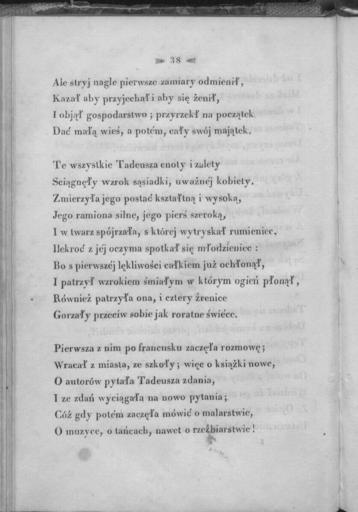 38
Ale stryj nagle pierwsze zamiary odmienił,
Kazał aby przyjechał i aby się żenił,
I objął gospodarstwo ; przyrzekł na początek
Dać małą wieś, a potém, cały swój majątek.
Te wszystkie Tadeusza cnoty i zalety
Sciągnęły wzrok sąsiadki, uważnéj kobiety.
Zmierzyła jego postać kształtną i wysoką,
Jego ramiona silne, jego pierś szeroką,
I w twarz spójrzała, s której wytryskał rumieniec,
Ilekroć z jéj oczyma spotkał się młodzieniec :
Bo s pierwszéj lękliwości całkiem już ochłonął,
I patrzył wzrokiem śmiałym w którym ogień płonął,
Również patrzyła ona, i cztery źrenice
Gorzały przeciw sobie jak roratne świéce.
Pierwsza z nim po francusku zaczęła rozmowę ;
Wracał z miasta, ze szkoły ; więc o książki nowe,
O autorów pytała Tadeusza zdania,
I ze zdań wyciągała na nowo pytania ;
Cóż gdy potém zaczęła mówić o malarstwie,
O muzyce, o tańcach, nawet o rzeźbiarstwie !